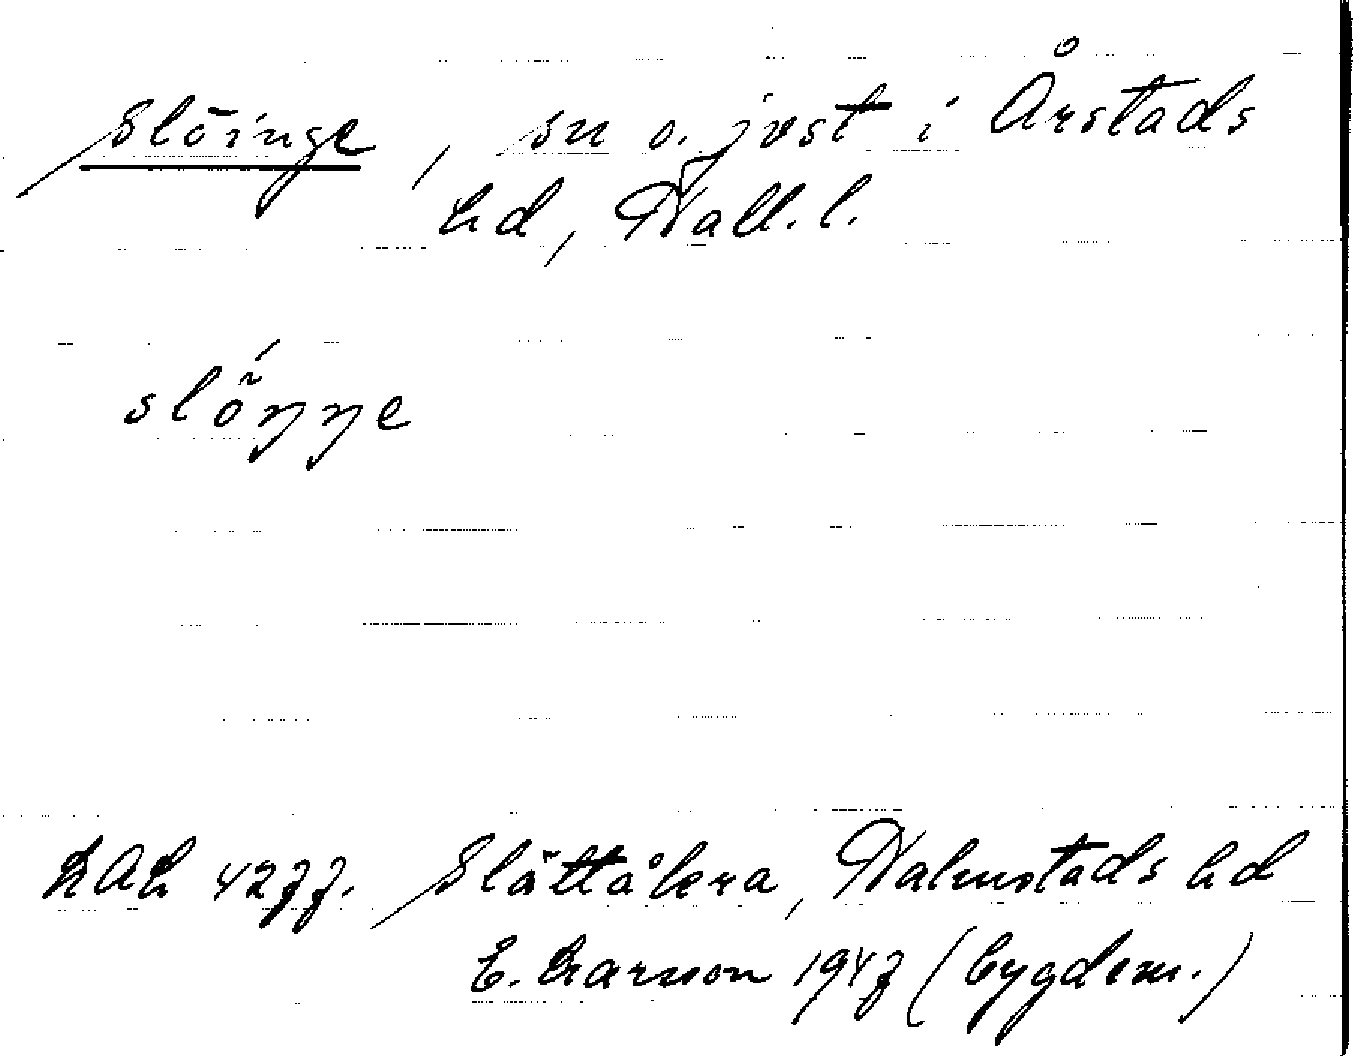 Slöinge, sn o. jvst i Årstads
hd, Hall. l.
slöŋŋe
LAL 4277. Slättåkra, Halmstads hd
E. Larsson 1947 (bygdem.)